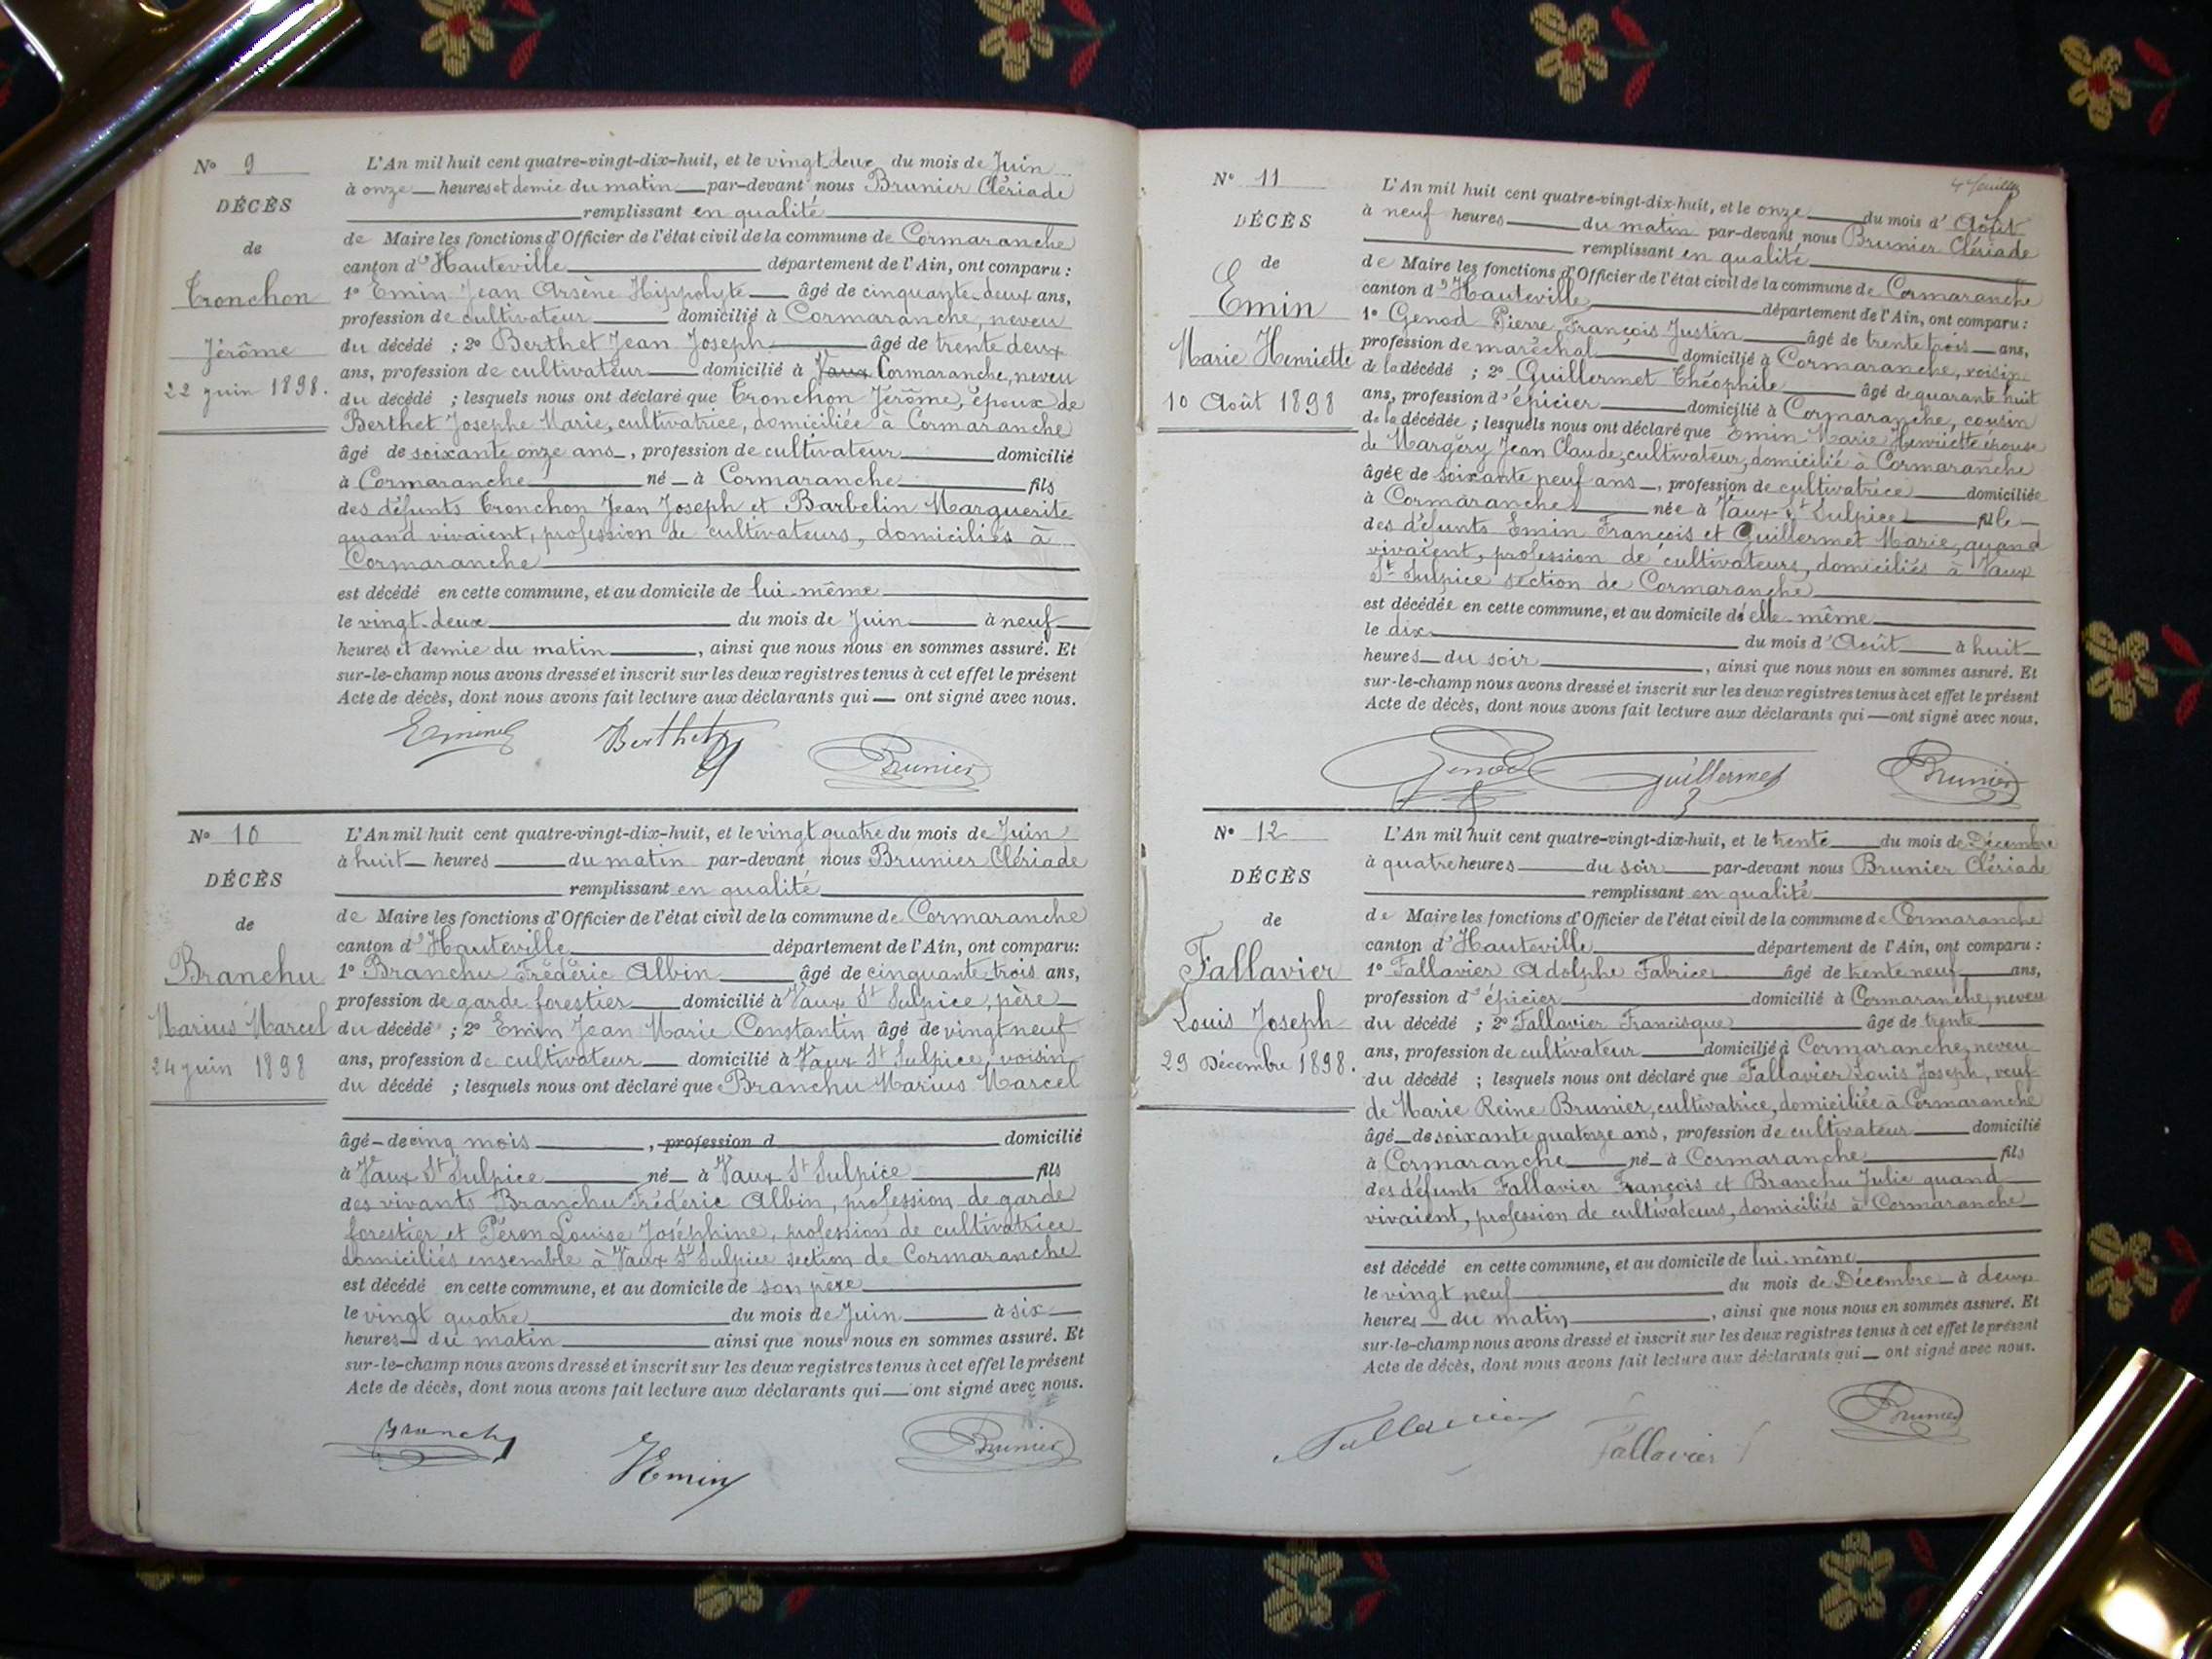 N° 9
DÉCÈS
de
Tronchon
Jérôme
22 juin 1898.
L'An mil huit cent quatre-vingt-dix-huit, et le vingt deux du mois de Juin
à onze heures et demie du matin par-devant nous Brunier Clériade
remplissant en qualité
de Maire les fonctions d'Officier de l'état civil de la commune de Cormaranche
canton d'Hauteville département de l'Ain, ont comparu :
1° Emin Jean Arsène Hippolyte âgé de cinquante-deux ans,
profession de cultivateur domicilié à Cormaranche, neveu
du décédé ; 2° Berthet Jean Joseph âgé de trente deux
ans, profession de cultivateur domicilié à Vaux Cormaranche, neveu
du décédé ; lesquels nous ont déclaré que Tronchon Jérôme, époux de
Berthet Josephe Marie, cultivatrice, domiciliée à Cormaranche
âgé de soixante onze ans, profession de cultivateur domicilié
à Cormaranche né à Cormaranche fils
des défunts Tronchon Jean Joseph et Barbelin Marguerite
quand vivaient, profession de cultivateurs, domiciliés à
Cormaranche
est décédé en cette commune, et au domicile de lui-même
le vingt-deux du mois de Juin à neuf
heures et demie du matin, ainsi que nous nous en sommes assuré. Et
sur-le-champ nous avons dressé et inscrit sur les deux registres tenus à cet effet le présent
Acte de décès, dont nous avons fait lecture aux déclarants qui ont signé avec nous.
Berthet Brunier
N° 10
DÉCÈS
de
Branchu
Marius Marcel
24 juin 1898
L'An mil huit cent quatre-vingt-dix-huit, et le vingt quatre du mois de Juin
à huit heures du matin par-devant nous Brunier Clériade
remplissant en qualité
de Maire les fonctions d'Officier de l'état civil de la commune de Cormaranche
canton d'Hauteville département de l'Ain, ont comparu:
1° Branchu Frédéric Albin âgé de cinquante-trois ans,
profession de garde forestier domicilié à Vaux St Sulpice, père
du décédé ; 2° Emin Jean Marie Constantin âgé de vingt neuf
ans, profession de cultivateur domicilié à Vaux St Sulpice, voisin
du décédé ; lesquels nous ont déclaré que Branchu Marius Marcel
âgé de cinq mois, profession d domicilié
à Vaux St Sulpice né à Vaux St Sulpice fils
des vivants Branchu Frédéric Albin, profession de garde
forestier et Péron Louise Joséphine, profession de cultivatrice
domiciliés ensemble à Vaux St Sulpice section de Cormaranche
est décédé en cette commune, et au domicile de son père
le vingt quatre du mois de Juin à six
heures du matin ainsi que nous nous en sommes assuré. Et
sur-le-champ nous avons dressé et inscrit sur les deux registres tenus à cet effet le présent
Acte de décès, dont nous avons fait lecture aux déclarants qui ont signé avec nous.
Branchu Emin Brunier
4e feuillet
N° 11
DÉCÈS
de
Emin
Marie Henriette
10 Août 1898
L'An mil huit cent quatre-vingt-dix-huit, et le onze du mois d'Août
à neuf heures du matin par-devant nous Brunier Clériade
remplissant en qualité
de Maire les fonctions d'Officier de l'état civil de la commune de Cormaranche
canton d'Hauteville département de l'Ain, ont comparu :
1° Genod Pierre François Justin âgé de trente trois ans,
profession de maréchal domicilié à Cormaranche, voisin
de la décédé ; 2° Guillermet Théophile âgé de quarante huit
ans, profession d'épicier domicilié à Cormaranche, cousin
de la décédée ; lesquels nous ont déclaré que Emin Marie Henriette épouse
de Margery Jean Claude, cultivateur, domicilié à Cormaranche
âgée de soixante neuf ans, profession de cultivatrice domiciliée
à Cormaranche née à Vaux St Sulpice fille
des défunts Emin François et Guillermet Marie, quand
vivaient, profession de cultivateurs, domiciliés à Vaux
St Sulpice section de Cormaranche
est décédée en cette commune, et au domicile d'elle-même
le dix du mois d'Août à huit
heures du soir, ainsi que nous nous en sommes assuré. Et
sur-le-champ nous avons dressé et inscrit sur les deux registres tenus à cet effet le présent
Acte de décès, dont nous avons fait lecture aux déclarants qui ont signé avec nous.
Genod Guillermet Brunier
N° 12
DÉCÈS
de
Fallavier
Louis Joseph
29 Décembre 1898.
L'An mil huit cent quatre-vingt-dix-huit, et le trente du mois de Décembre
à quatre heures du soir par-devant nous Brunier Clériade
remplissant en qualité
de Maire les fonctions d'Officier de l'état civil de la commune de Cormaranche
canton d'Hauteville département de l'Ain, ont comparu :
1° Fallavier Adolphe Fabrice âgé de trente neuf ans,
profession d'épicier domicilié à Cormaranche, neveu
du décédé ; 2° Fallavier Francisque âgé de trente
ans, profession de cultivateur domicilié à Cormaranche, neveu
du décédé ; lesquels nous ont déclaré que Fallavier Louis Joseph, veuf
de Marie Reine Brunier, cultivatrice, domiciliée à Cormaranche
âgé de soixante quatorze ans, profession de cultivateur domicilié
à Cormaranche né à Cormaranche fils
des défunts Fallavier François et Branchu Julie quand
vivaient, profession de cultivateurs, domiciliés à Cormaranche
est décédé en cette commune, et au domicile de lui-même
le vingt neuf du mois de Décembre à deux
heures du matin, ainsi que nous nous en sommes assuré. Et
sur-le-champ nous avons dressé et inscrit sur les deux registres tenus à cet effet le présent
Acte de décès, dont nous avons fait lecture aux déclarants qui ont signé avec nous.
Fallavier Fallavier Brunier